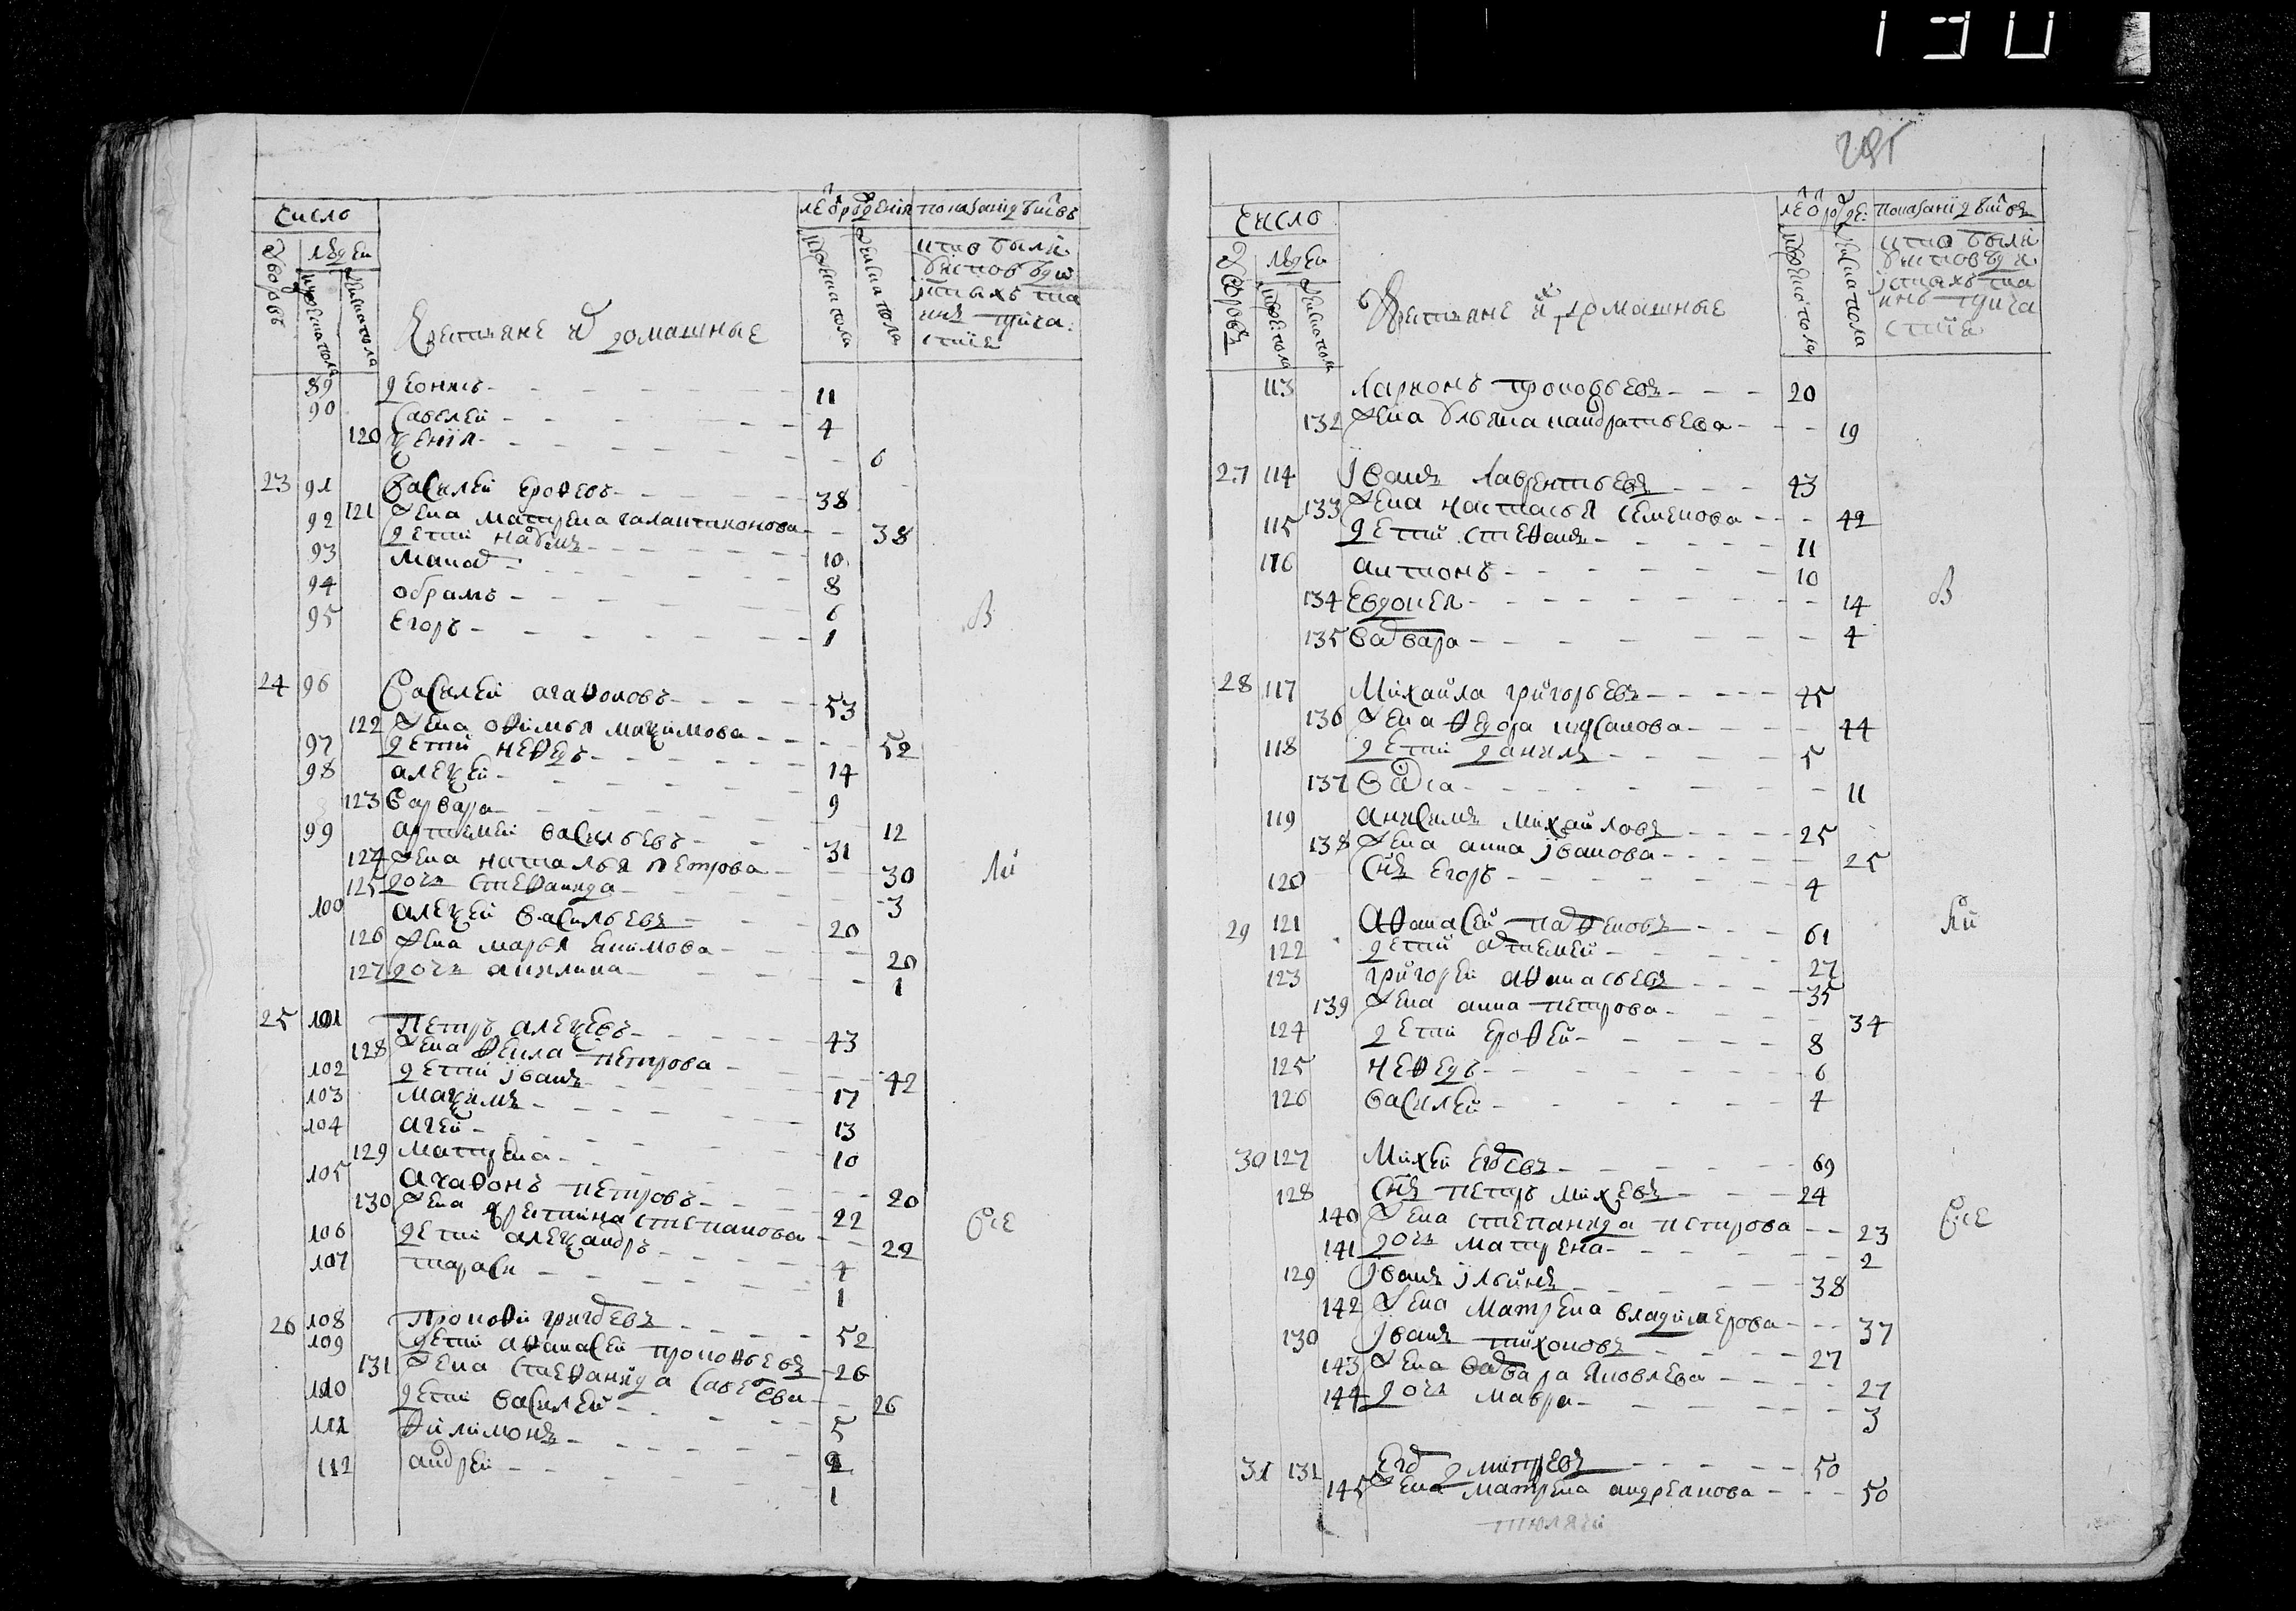 130
число
лѣ ѿ рождения
показание действъ
дворовъ
людеи
мужеска пола
женска пола
крестьяне и домашные
мужеска пола
женска пола
кто были
у исповеди
и святыхъ таи
инъ прича
стия
89 деонисъ 11
90 савелеи 4
120 ксения 6
23 91 василеи ерофеевъ 38
121 жена матрена галактионова 38
92 дети наумъ 10
93 макаръ 8
94 обрамъ 6
95 егоръ 1
В
24 96 василеи агафоновъ 53
122 жена офимья максимова 52
97 дети нефедъ 14
98 алексеи 9
123 варвара 12
99 артемеи васильевъ 31
124 жена наталья петрова 30
125 дочь степанида 3
100 алексеи васильевъ 20
126 жена марья екимова 20
127 дочь акулина 1
ли
25 101 петръ алексеевъ 43
128 жена фекла петрова 42
102 дети иванъ 17
103 максимъ 13
104 агеи 10
129 матрена 20
105 агафонъ петровъ 22
130 жена христина степанова 22
106 дети александръ 4
107 тарасъ 1
все
26 108 прокофеи григорьевъ 52
109 дети афанасеи прокофьевъ 26
131 жена степанида савельева 26
110 дети василеи 5
111 филимонъ 2
112 андреи 1
число
лѣ ѿ рожде:
показание действъ
дворовъ
людеи
мужеска пола
женска пола
крестьяне и домашные
мужеска пола
женска пола
кто были
у исповеди
и святыхъ таи
инъ прича
стия
113 ларионъ прокофьевъ 20
132 жена ульяна кандратьева 19
27 114 иванъ лаврентьевъ 43
133 жена настасья семенова 42
115 дети степанъ 11
116 антонъ 10
134 евдокея 14
135 варвара 4
В
28 117 михаила григорьевъ 45
136 жена федора 44
118 дети данила 5
137 васса 11
119 анисимъ михаиловъ 25
138 жена анна иванова 25
120 сынъ егоръ 4
29 121 афанасеи парфеновъ 61
122 дети артемеи 27
123 григореи афанасьевъ 35
139 жена анна петрова 34
124 дети ерофеи 8
125 нефедъ 6
126 василеи 4
ли
30 127 михеи егоровъ 69
128 сынъ петръ михеевъ 24
140 жена степанида петрова 23
141 дочь матрена 2
129 иванъ ильинъ 38
142 жена матрена владимерова 37
130 иванъ тихоновъ 27
143 жена варвара яковлева 27
144 дочь мавра 3
все
31 131 егоръ дмитревъ 50
145 жена матрена андреянова 50